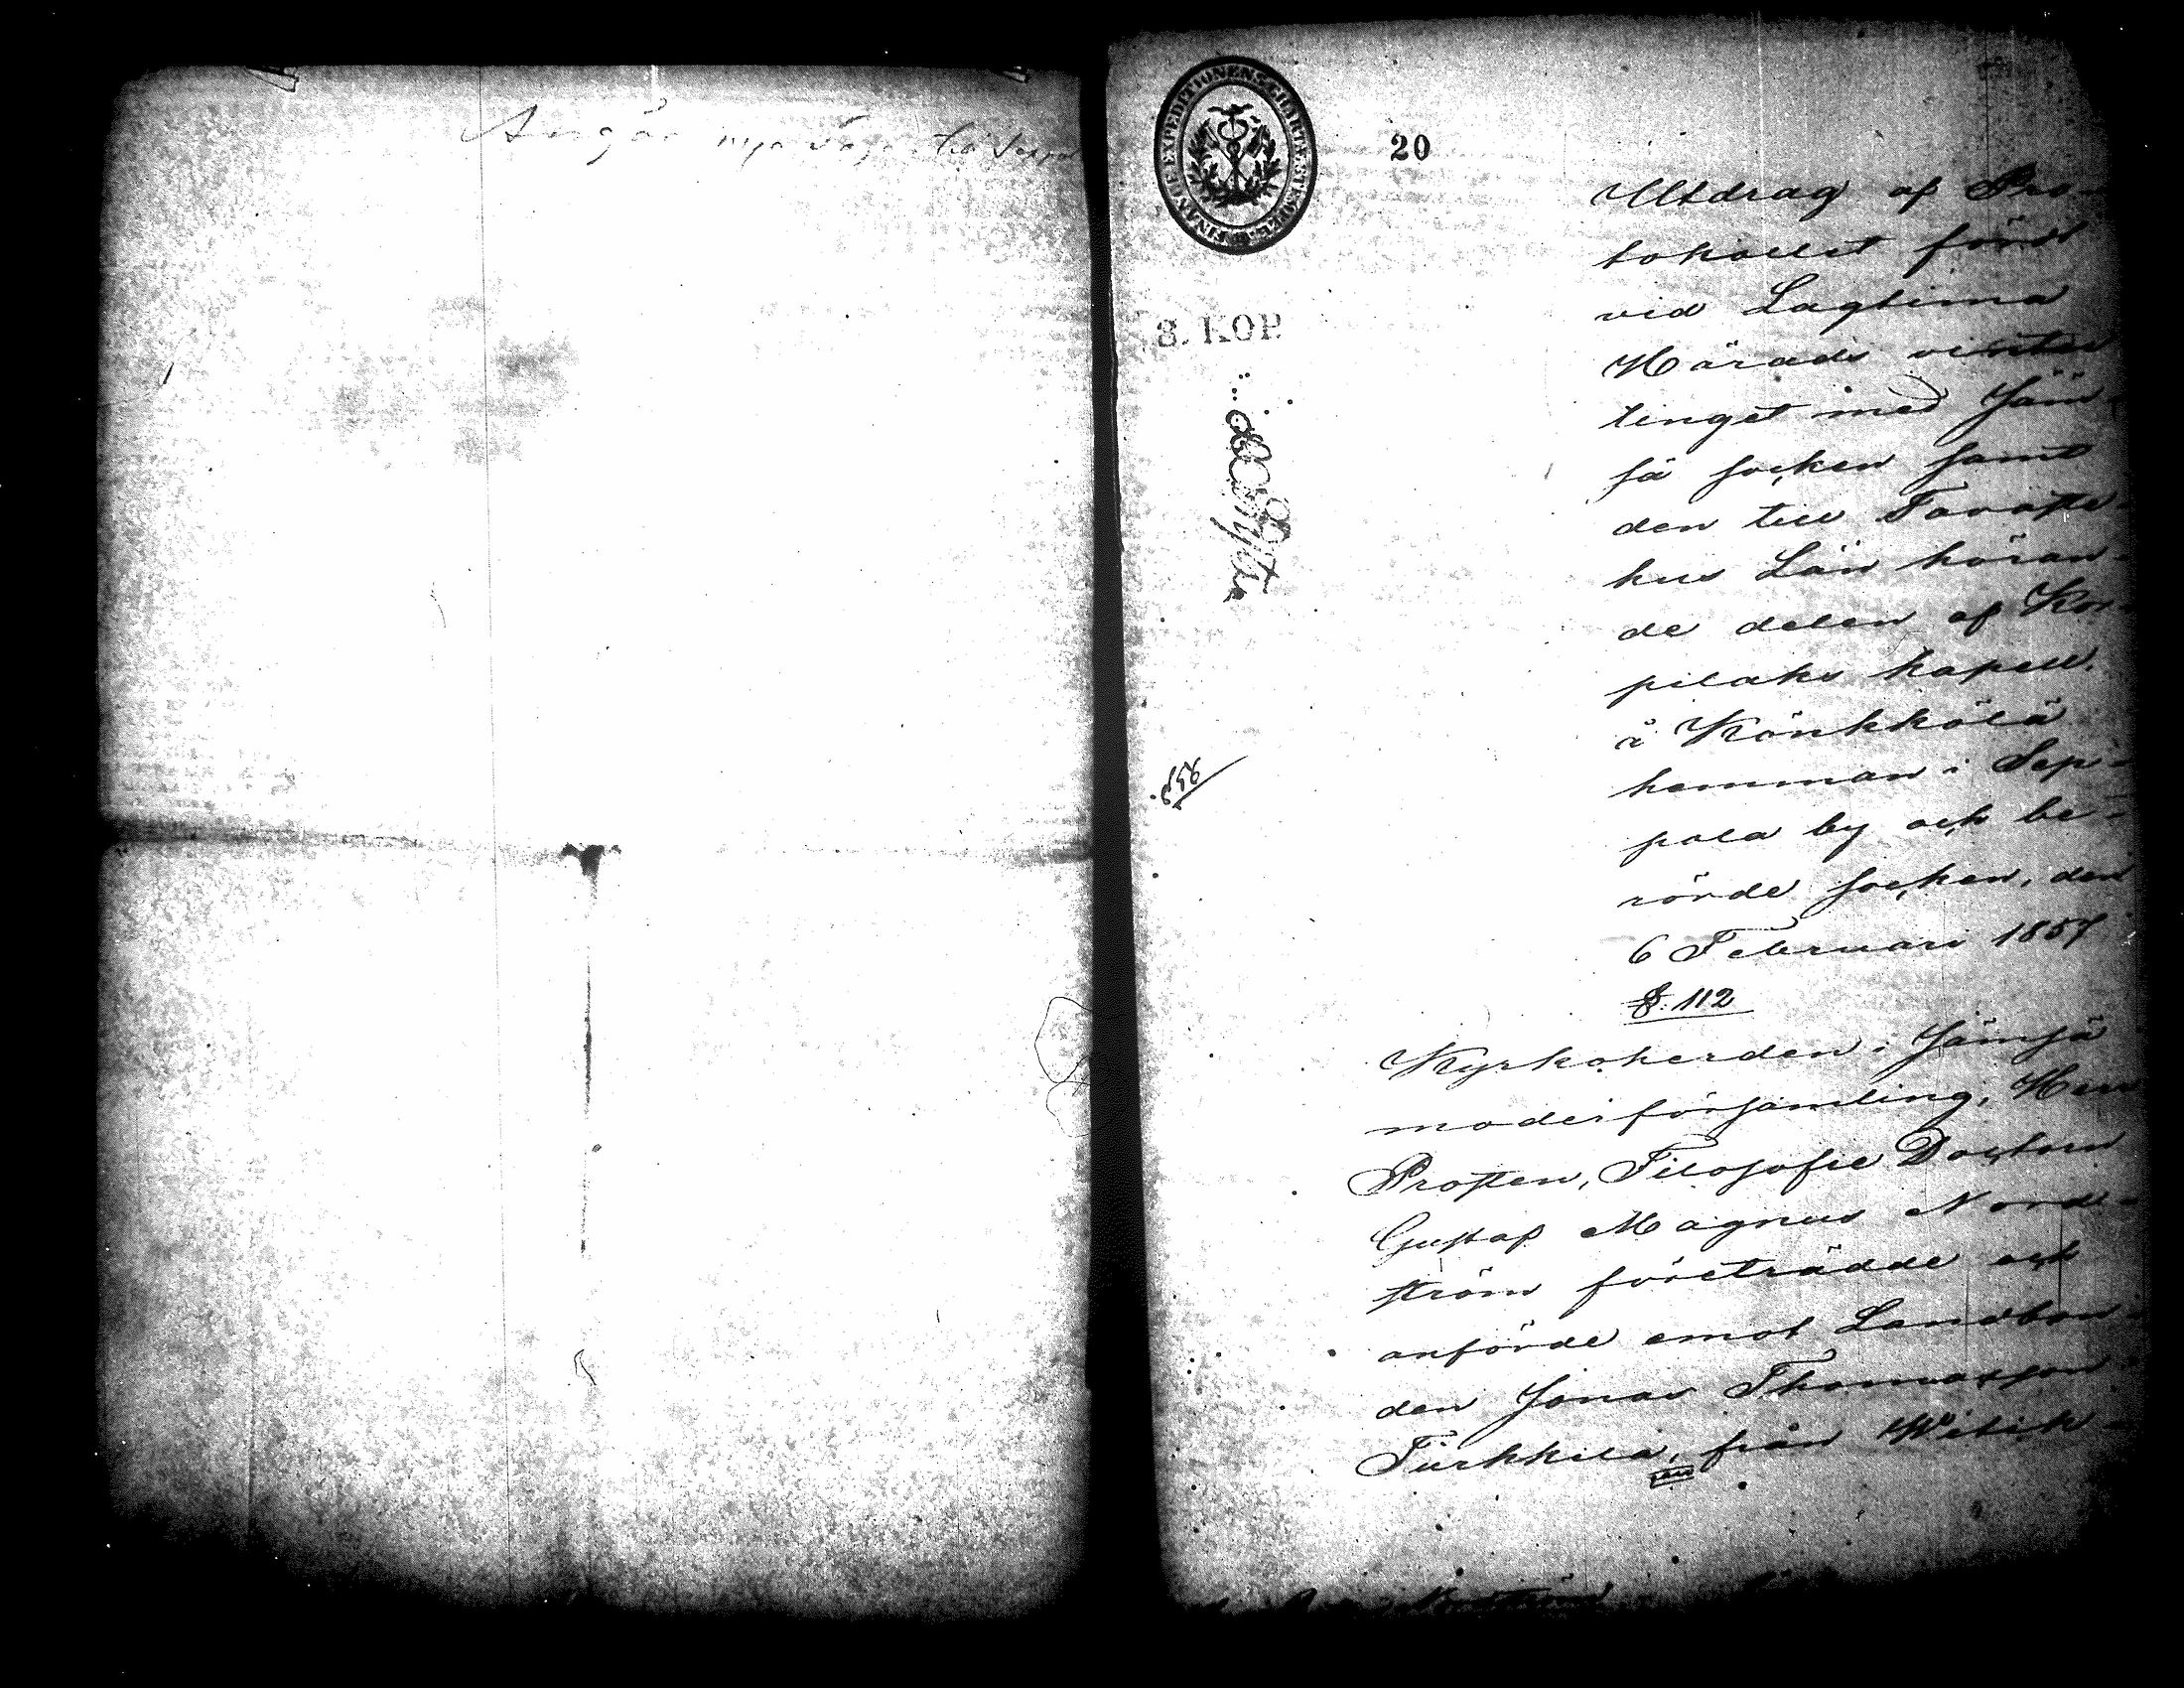 Angår nya vägar
20
3. KOP.
Utdrag af Pro-
tokollet fördt
vid Lagtima
Härads vinter
tinget med Jäm-
sä socken samt
den till Tavaste-
hus Län höran-
de delen af Kor-
pilaks kapell,
å Könkkölä
hemman i Seppo-
pola by och be-
rörde socken, den
6 Februari 1857
§. 112
Kyrkoherden i Jämsä
moderförsamling, Herr
Prosten, Filosofie Doctorn
Gustaf Magnus Nord-
ström företrädde och
anförde emot Landbon-
den Jonas Thomasson
Turkkila, från Witik-